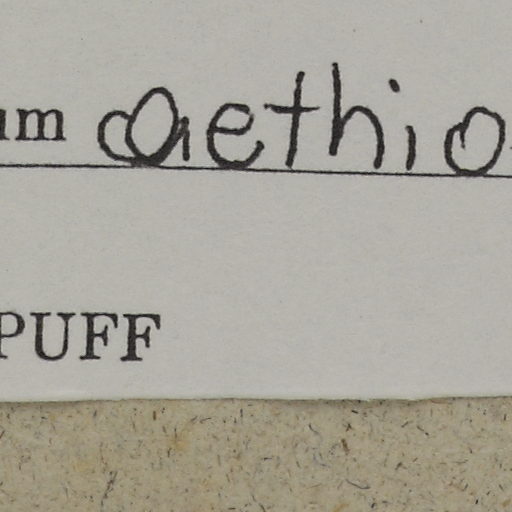 um aethio
PUFF